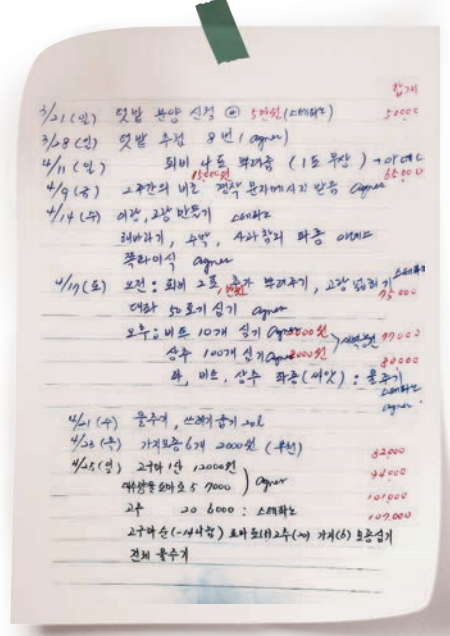 합계
3/21(일) 텃밭 분양 신청 @ 5만원(스테파노) 50000
3/28(일) 텃밭 추첨 8번 (agner)
4/11(일) 퇴비 나도 뿌려줌 (1도 무상) → 아녜스
15000원 65000
4/9(금) 2주간의 비는 경작 문자메시지 받음 agner
4/14(수) 이랑, 고랑 만들기 스테파노
해바라기, 수박, 사과참외 파종 아녜스
쪽파이식 agner
4/17(토) 오전: 퇴비 2포, 추가 뿌려주기, 고랑 넓히기 스테파노
만원 75000
대파 50포기 심기 agner
오후: 비트 10개 심기 agner 2000원 77000
상추 100개 심기 agner 3000원 80000
파, 비트, 상추 파종(씨앗): 물주기
스테파노
agner
4/21(수) 물주기, 쓰레기줍기 20l
4/23(목) 가지모종 6개 2000원 82,000
4/25(일) 고구마 1단 12000원 94000
토마토 5 7000 agner 101,000
고추 20 6000: 스테파노 107,000
고구마순 토마토 고추 가지(6) 모종심기
전체 물주기